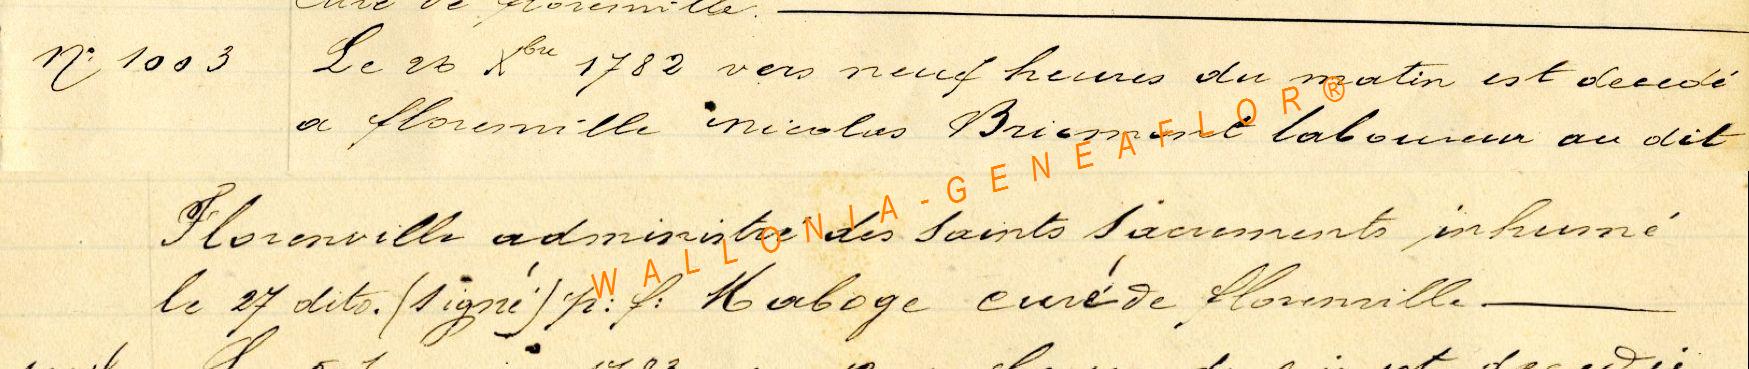 Curé de florenville.
N: 1003 Le 26 Xbre 1782 vers neuf heures du matin est decedé
a florenville nicolas Briamont laboureur au dit
Florenville administré des saints sacrements inhumé
le 27 dito. (signé) p: f: Haboge curé de florenville
WALLONIA-GENEAFLOR®